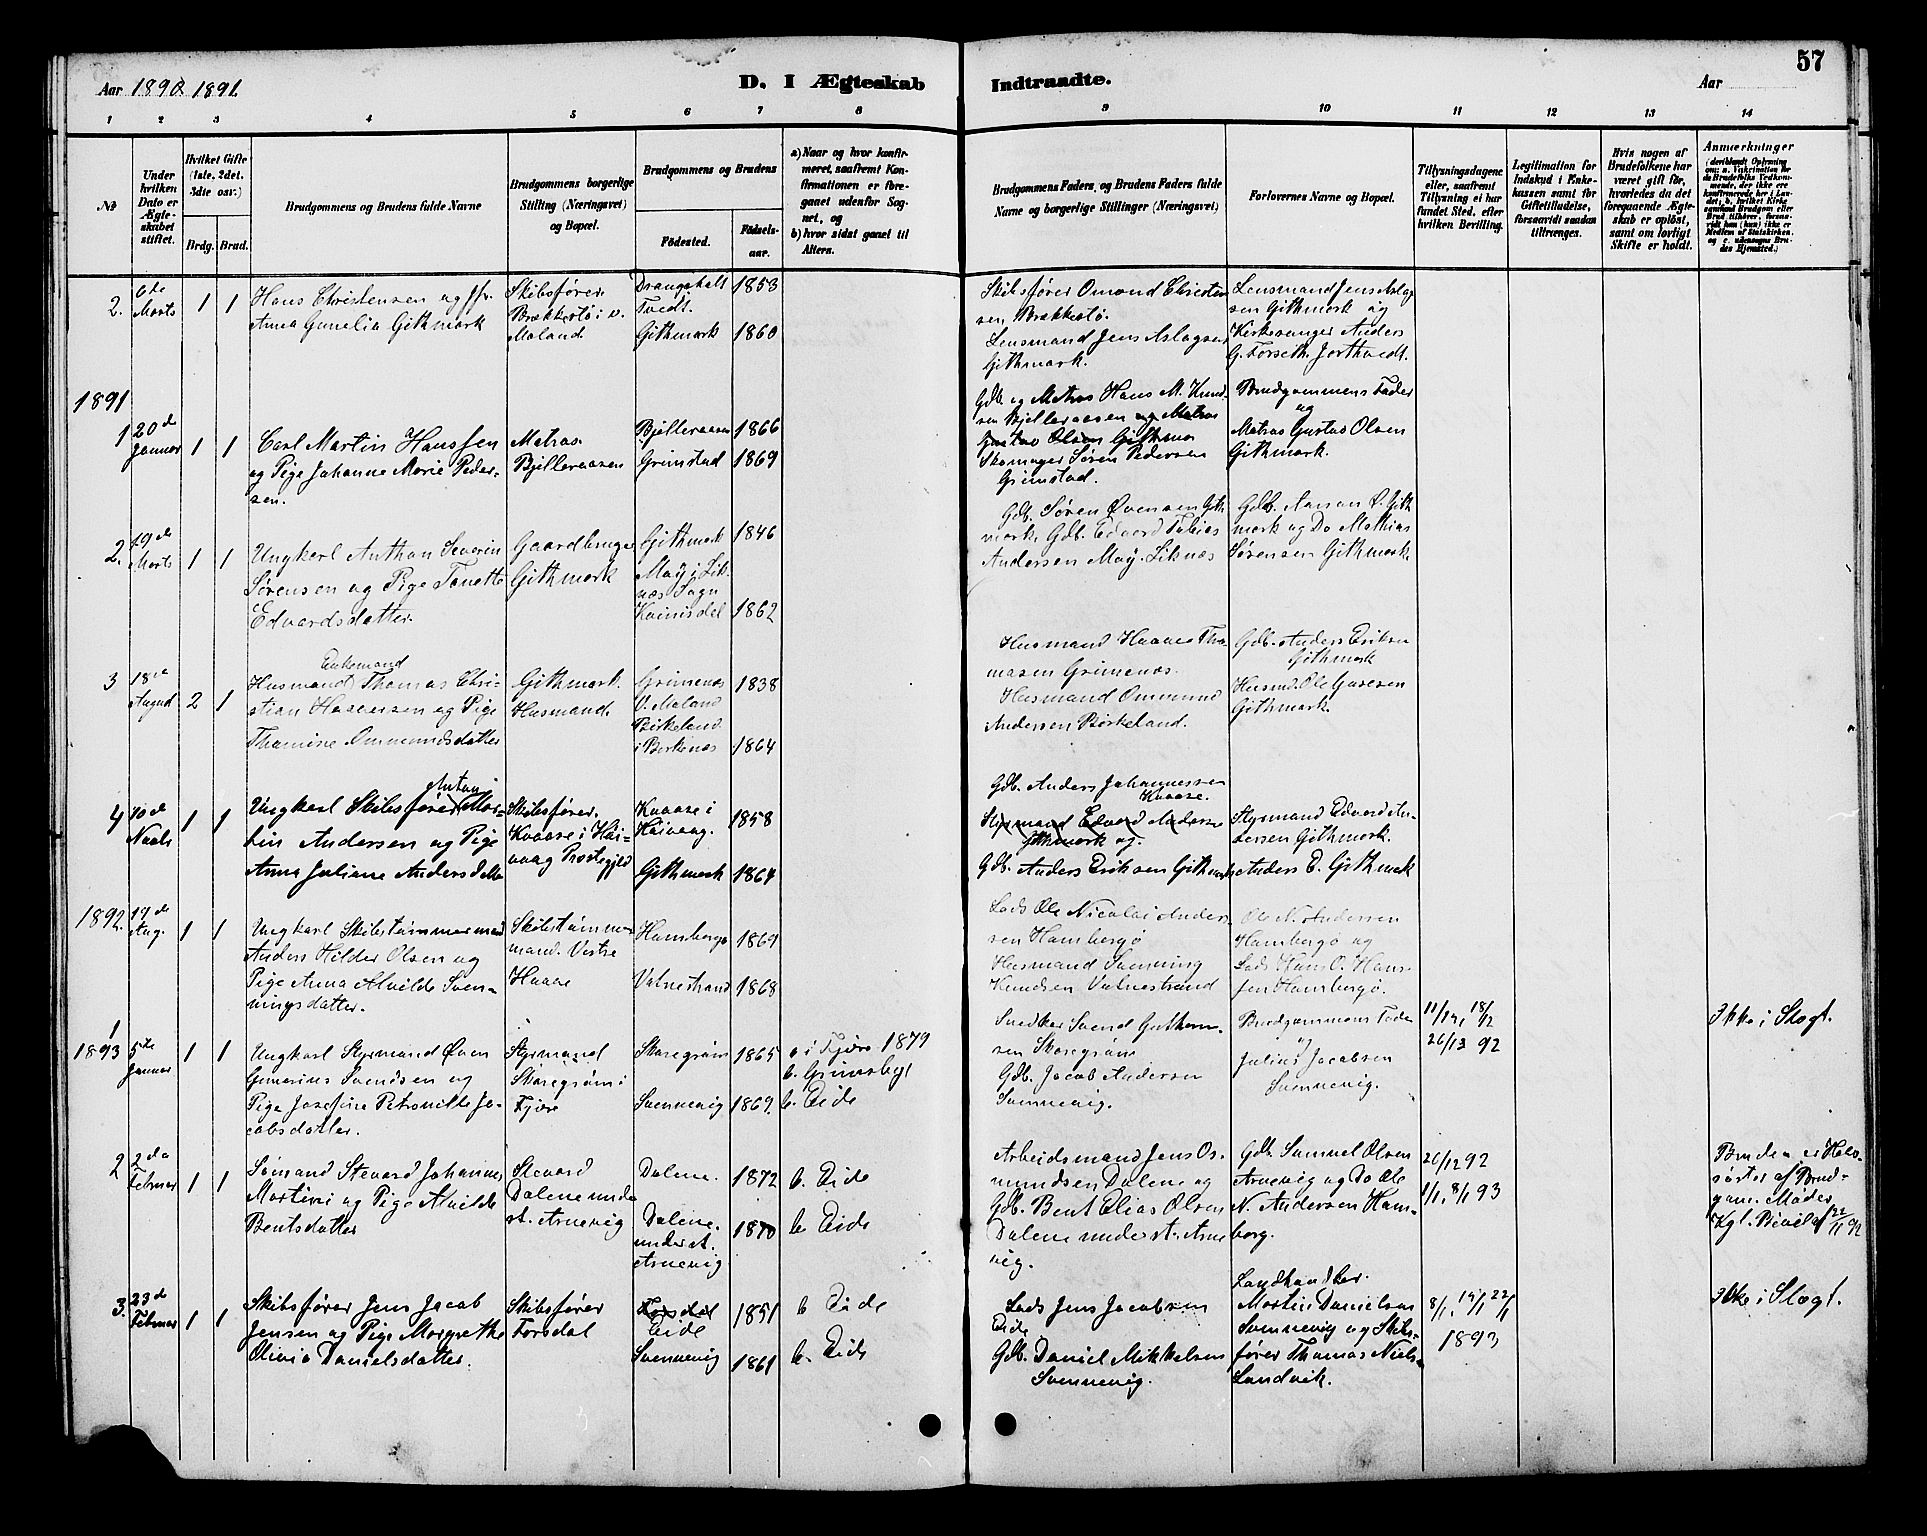 57
Aar 1890. 1891.
D. I Ægteskab Indtraadte.
Aar
1 2 3 4 5 6 7 8 9 10 11 12 13 14
№
Under hvilken Dato er Ægteskabet stiftet.
Hvilket Gifte (1ste, 2det, 3die osv.)
Brdg. Brud.
Brudgommens og Brudens fulde Navne
Brudgommens borgerlige Stilling (Næringsvei) og Bopæl.
Brudgommens og Brudens
Fødested.
Fødsels-aar.
a) Naar og hvor konfirmeret, saafremt Konfirmationen er foregaaet udenfor Sognet, og
b) hvor sidst gaaet til Alters.
Brudgommens Faders, og Brudens Faders fulde Navne og borgerlige Stillinger (Næringsvei)
Forlovernes Navne og Bopæl.
Tillysningsdagene eller, saafremt Tillysning ei har fundet Sted, efter hvilken Bevilling.
Legitimation for Indskud i Enkekassen samt for Giftetilladelse, forsaavidt saadan tiltrænges.
Hvis nogen af Brudefolkene har været gift før, hvorledes da det foregaaende Ægteskab er opløst, samt om lovligt Skifte er holdt.
Anmærkninger
2. 6te Marts 1 1
Hans Christensen og
Anna Gunelia Githmark
Skibsfører
Brækkestø i V.
Moland
Drangsholt
Tvedt. 1853
Githmark 1860
Skibsfører Omond Christen
sen Brækkestø.
Lensmand Jens Aslagsen
Githmark.
Lensmand Jens Aslag
sen Githmark og
Kirkesanger Anders
G. Forseth Jorthvedt.
1891
1 20de Januar 1 1
Carl Martin Hanssen
og Pige Johanne Marie Peder-
sen.
Matros
Bjelleraasen
Bjelleraasen 1866
Grimstad 1869
Gdb. og Matros Hans M. Knud-
sen Bjelleraasen og Matros
Gustav Olsen Githmar
Skomager Søren Pedersen
Grimstad.
Brudgommens Fader
og
Matros Gustav Olsen
Githmark.
2. 19de Marts 1 1
Ungkarl Anthon Severin
Sørensen og Pige Tonette
Edvardsdatter.
Gaardbruger
Githmark
Githmark 1846
May i Lik-
nes Sogn
Kvinisdal 1862
Gdb. Søren Ovensen Gith
mark. Gdb. Edvard Tobias
Andersen May. Liknes
Gdb. Aanen O. Gith
mark og Do Mathias
Sørensen Githmark.
3 18de August 2 1
Enkemand
Husmand Thomas Chri-
stian Haaversen og Pige
Thomine Ommundsdatter
Githmark.
Husmand.
Grimenes
V. Moland 1838
Birkeland
i Birkenes 1864
Husmand Haaver Tho-
masen Grimenes.
Husmand Ommund
Andersen Birkeland.
Gdb. Anders Eriksen
Githmark
Husmd. Ole Gusesen
Githmark.
4 10de 1 1
Anton
Ungkarl Skibsfører Mar-
tin Andersen og Pige
Anna Juliane Andersdatter
Skibsfører.
Kvaase i Høi-
vaag Præstegjeld
Kvaase i
Høivaag. 1858
Githmark 1864
Gdb. Anders Johannessen
Kvaase.
Styrmand Edvard Anderse
Githmark og.
Gdb. Anders Eriksen Githmark
Styrmand Edvard An-
dersen Githmark.
Anders E. Githmark
1892. 19de Aug. 1 1
Ungkarl Skibstømmermand
Anders Hilder Olsen og
Pige Anna Alvilde Sven-
ningsdatter.
Skibstømmer
mand. Vestre
Kvaase
Hambergø 1869
Valnestrand 1868
Lods Ole Nicolai Ander
sen Hambergø
Husmand Svenning
Knudsen Valnestrand
Ole N. Andersen
Hambergø og
Lods Hans O. Han-
sen Hambergø.
1
1893 5te Januar 1 1
Ungkarl Styrmand Oven
Gunerius Svendsen og
Pige Josefine Petronille Ja-
cobsdatter.
Styrmand
Skaregrøm i
Fjære
Skaregrøm 1865
Svennevig 1869.
a i Fjære 1879
b. Grimsby
b. Eide
Snedker Svend Guthorm-
sen Skaregrøm
Gdb. Jacob Andersen
Svennevig.
Brudgommens Fader
og
Julius Jacobsen
Svennevig.
11/12, 18/12
26/12 92
Ikke i Slægt.
2 2den Februar 1 1
Sømand Steward Johannes
Mortini og Pige Alvilde
Bentsdatter
Steward
Dalene unde
st. Arnevig
Dalene. 1872
Dalene.
underst.
Arnevig 1870
b. Eide
b Eide
Arbeidsmand Jens Os-
mundsen Dalene og
Gdb. Bent Elias Olsen
Dalene underst. Arne
vig.
Gdb. Samuel Olsen
Arnevig og Do Ole
N. Andersen Ham-
borg.
26/12 92
1/1, 8/1 93
Bruden er Halv-
søster af Brud-
gom. Moder
Kgl. Bevil af 22/11 92
3. 23de Februar 1 1
Skibsfører Jens Jacob
Jensen og Pige Margrethe
Olivia Danielsdatter.
Skibsfører
Forsdal
Forsdal
Eide 1851
Svennevig 1861
b Eide
b. Eide
Lods Jens Jacobsen
Eide
Gdb. Daniel Mikkelsen
Svennevig.
Landhandler
Morten Danielsen
Svennevig og Skibs-
fører Thomas Niels-
Landvik.
8/1, 15/1 22/1
1893
Ikke i Slægt.